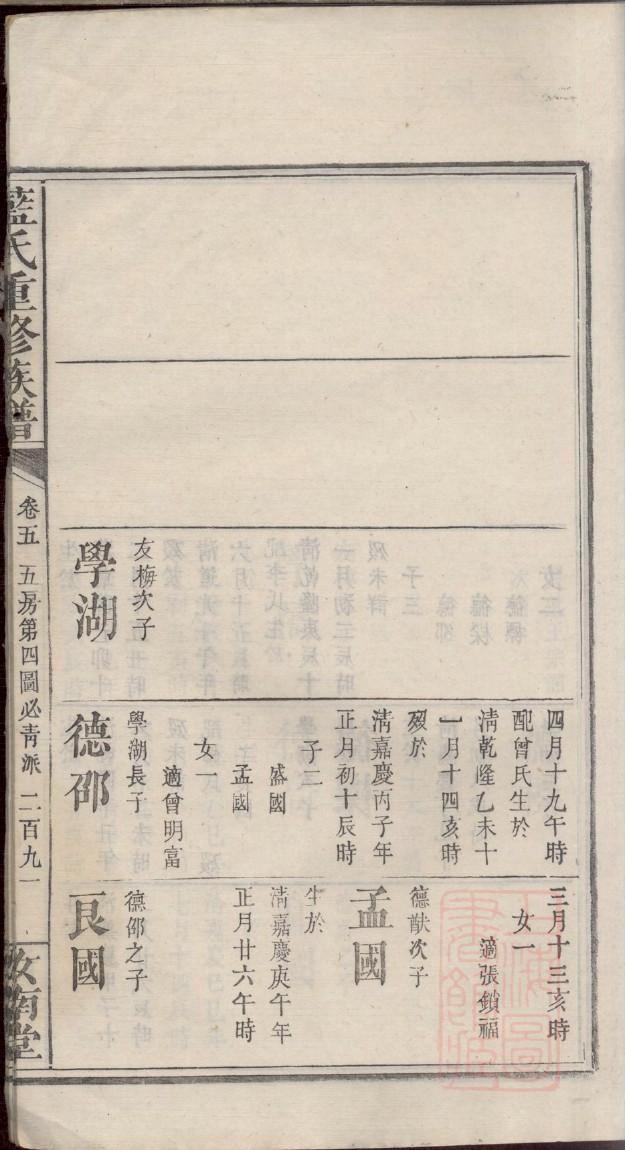 四月十九午時
配曾氏生於
淸乾隆乙未十
一月十四亥時
歿於
淸嘉慶丙子年
正月初十辰時
子二
盛國
孟國
女一
適曾明富
三月十三亥時
女一
適張鎖福
德猷次子
孟國
生於
淸嘉慶庚午年
正月廿六午時
友梅次子
學湖
學湖長子
德邵
德邵之子
良國
藍氏重修族譜
卷五 五房第四圖必靑派 二百九一
汝南堂